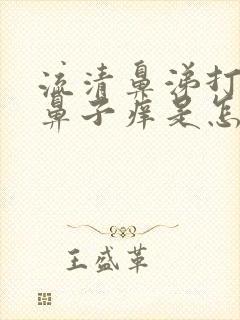 流清鼻涕打
鼻子痒是怎
王盛革